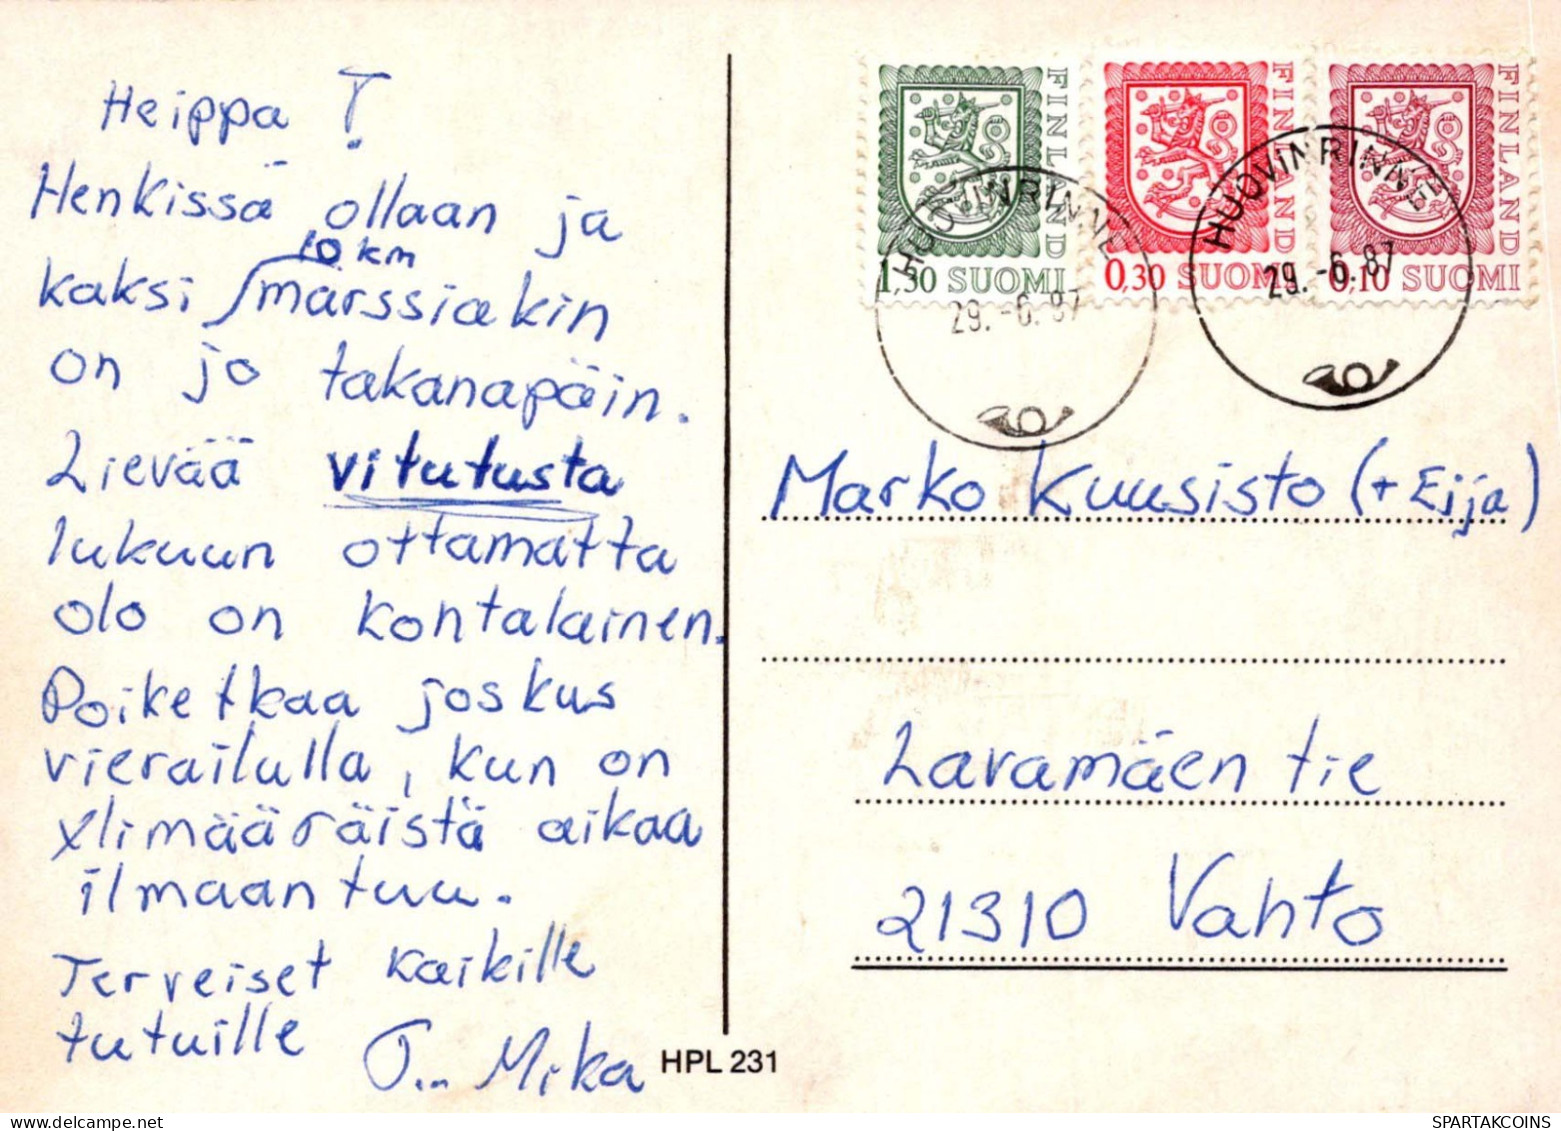 Heippa !
Henkissä ollaan ja
10 km
kaksi marssiakin
on jo takanapäin.
Lievää vitutusta
lukuun ottamatta
olo on kohtalainen.
Poiketkaa joskus
vierailulla, kun on
ylimääräistä aikaa
ilmaantuu.
Terveiset kaikille
tutuille
T... Mika
HPL 231
FINLAND
1,50 SUOMI
FINLAND
0,30 SUOMI
FINLAND
0,10 SUOMI
HUOVINRINNE
29.-6.87
HUOVINRINNE
29.-6.87
Marko Kuusisto (+ Eija)
Lavamäen tie
21310 Vahto
SPARTAKCOINS